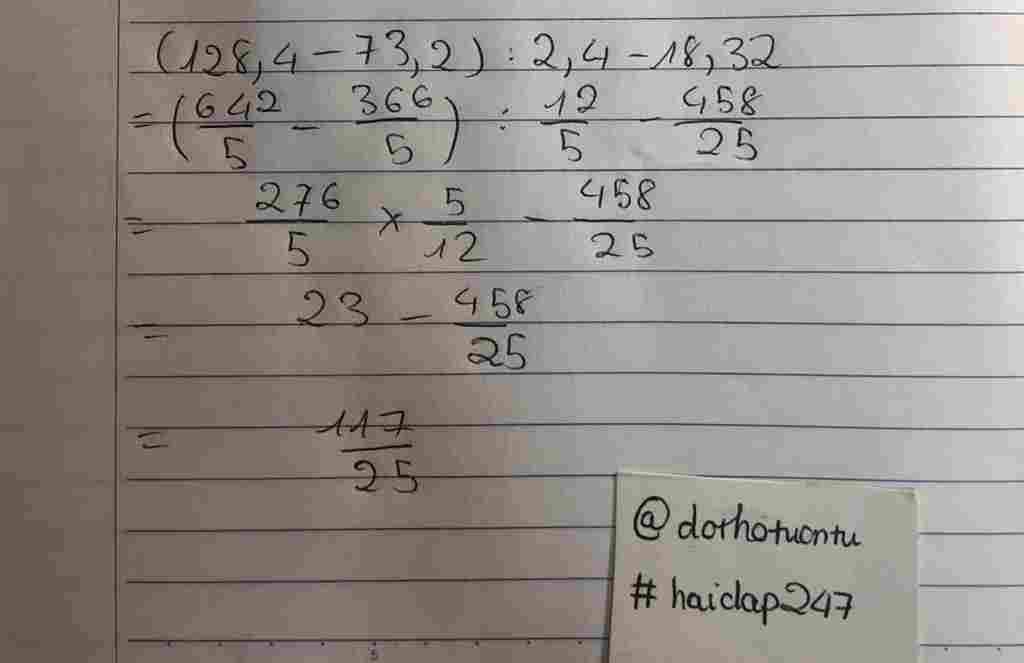 (128,4 - 73,2) : 2,4 - 18,32
= (642/5 - 366/5) : 12/5 - 458/25
= 276/5 × 5/12 - 458/25
= 23 - 458/25
= 117/25
@dorhotuontu
# haidap247
5